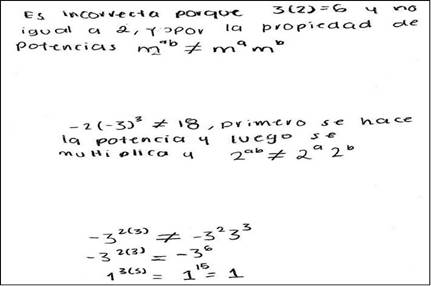 Es incorrecta porque 3(2)=6 y no
igual a 2, y por la propiedad de
potencias m^ab ≠ m^a m^b
-2(-3)^3 ≠ 18, primero se hace
la potencia y luego se
multiplica y 2^ab ≠ 2^a 2^b
-3^2(3) ≠ -3^2 3^3
-3^2(3) = -3^6
1^3(5) = 1^15 = 1